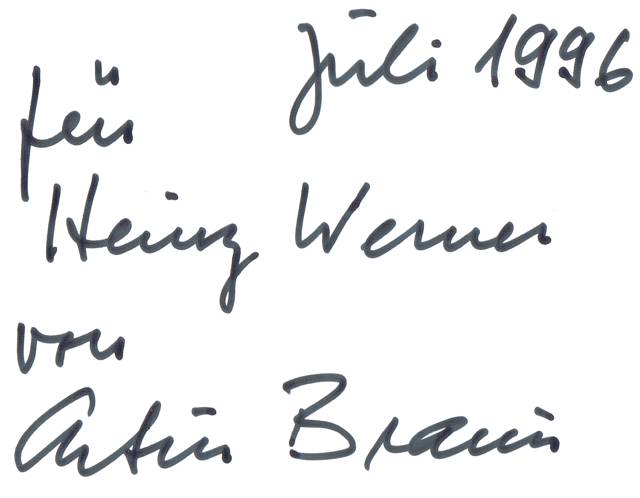 Juli 1996
für
Heinz Werner
von
Artur Braun